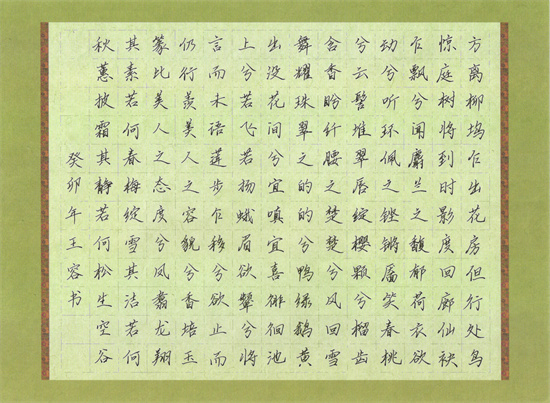 方离柳坞乍出花房但行处鸟
惊庭树将到时影度回廊仙袂
乍飘兮闻麝兰之馥郁荷衣欲
动兮听环佩之铿锵靥笑春桃
兮云髻堆翠唇绽樱颗兮榴齿
含香盼纤腰之楚楚兮风回雪
舞耀珠翠之的的兮鸭绿鹅黄
出没花间兮宜嗔宜喜徘徊池
上兮若飞若扬蛾眉欲颦兮将
言而未语莲步乍移兮欲止而
仍行羡美人之容貌兮香培玉
篆比美人之态度兮凤翥龙翔
其素若何春梅绽雪其洁若何
秋蕙披霜其静若何松生空谷
癸卯年王容书